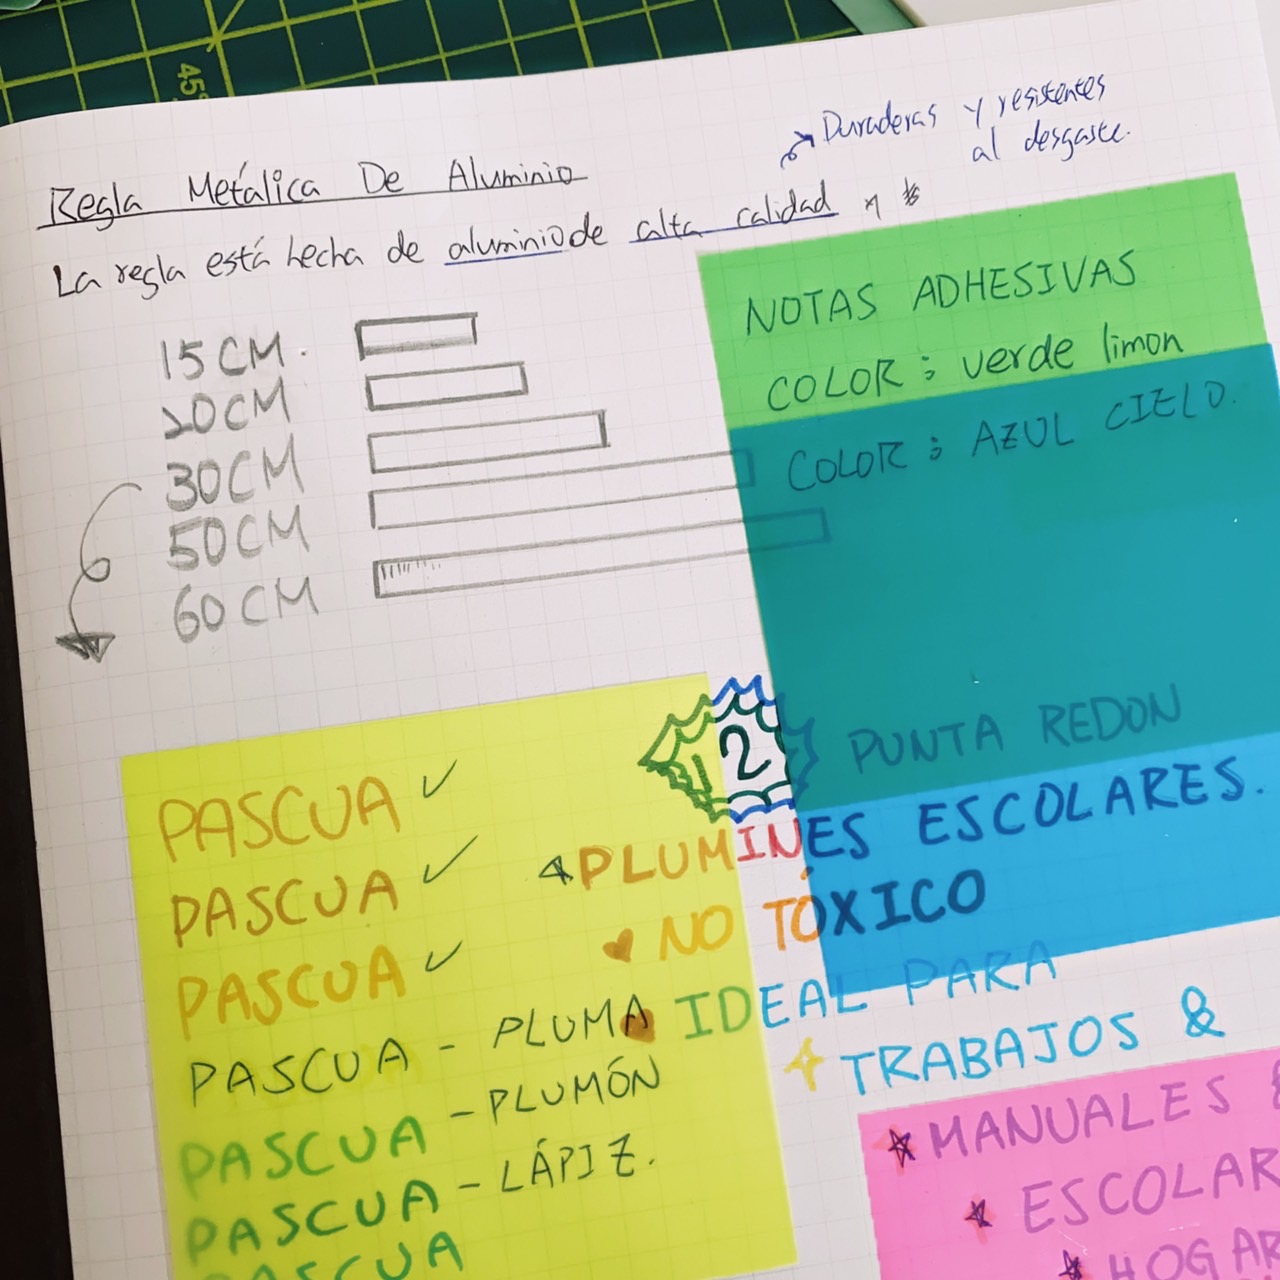 45°
Duraderas y resistentes
al desgaste.
Regla Metálica De Aluminio
La regla está hecha de aluminio de alta calidad
15CM.
20CM
30CM
50CM
60CM
NOTAS ADHESIVAS
COLOR: verde limon
COLOR: AZUL CIELO.
12
PUNTA REDON
PLUMINES ESCOLARES.
NO TÓXICO
IDEAL PARA
TRABAJOS &
MANUALES &
ESCOLAR
HOGAR
PASCUA ✓
PASCUA ✓
PASCUA ✓
PASCUA - PLUMA
PASCUA - PLUMÓN
PASCUA - LÁPIZ.
PASCUA